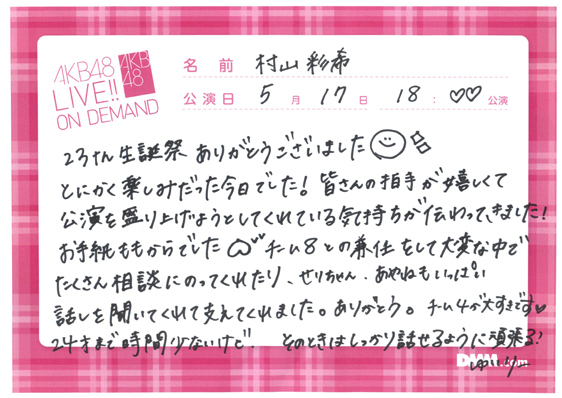 AKB48
LIVE!!
ON DEMAND
AKB
48
名 前 村山彩希
公演日 5 月 17 日 18 : ♡♡ 公演
23さん生誕祭 ありがとうございました
とにかく楽しみだった今日でした! 皆さんの拍手が嬉しくて
公演を盛り上げようとしてくれている気持ちが伝わってきました!
お手紙ももからでした チーム8との兼任をして大変な中で
たくさん相談にのってくれたり、せりちゃん、あやねもいっぱい
話しを聞いてくれて支えてくれました。ありがとう。チーム4が大すきです♡
24才まで時間少ないけど! そのときはしっかり話せるように頑張る?
DMM.com